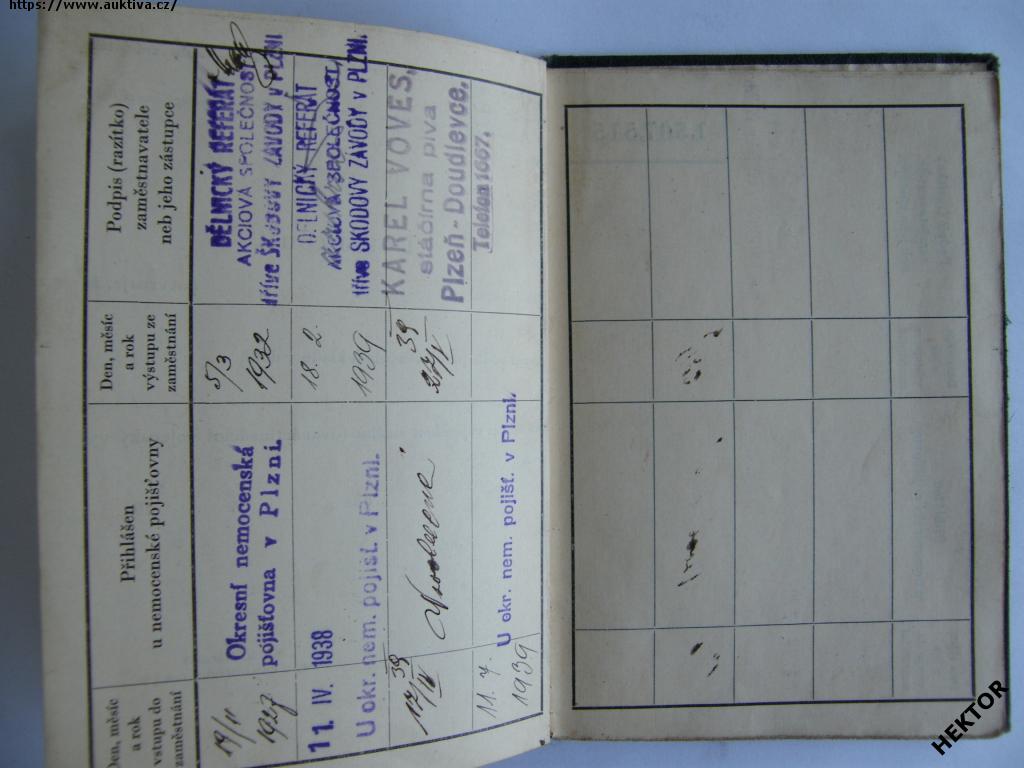 https://www.auktiva.cz/
Den, měsíc
a rok
vstupu do
zaměstnání
Přihlášen
u nemocenské pojišťovny
Den, měsíc
a rok
výstupu ze
zaměstnání
Podpis (razítko)
zaměstnavatele
neb jeho zástupce
19/11
1927
Okresní nemocenská
pojišťovna v Plzni.
5/3
1932
DĚLNICKÝ REFERÁT
AKCIOVÁ SPOLEČNOST
dříve ŠKODOVY ZÁVODY V PLZNI
11. IV. 1938
U okr. nem. pojišť. v Plzni.
18. 2.
1939
DĚLNICKÝ REFERÁT
AKCIOVÁ SPOLEČNOST,
dříve ŠKODOVY ZÁVODY V PLZNI.
17/IV 39
27/IV 39
KAREL VOVES,
stáčírna piva
Plzeň - Doudlevce.
Telefon 1667.
11. 7.
1939
U okr. nem. pojišť. v Plzni.
HEKTOR